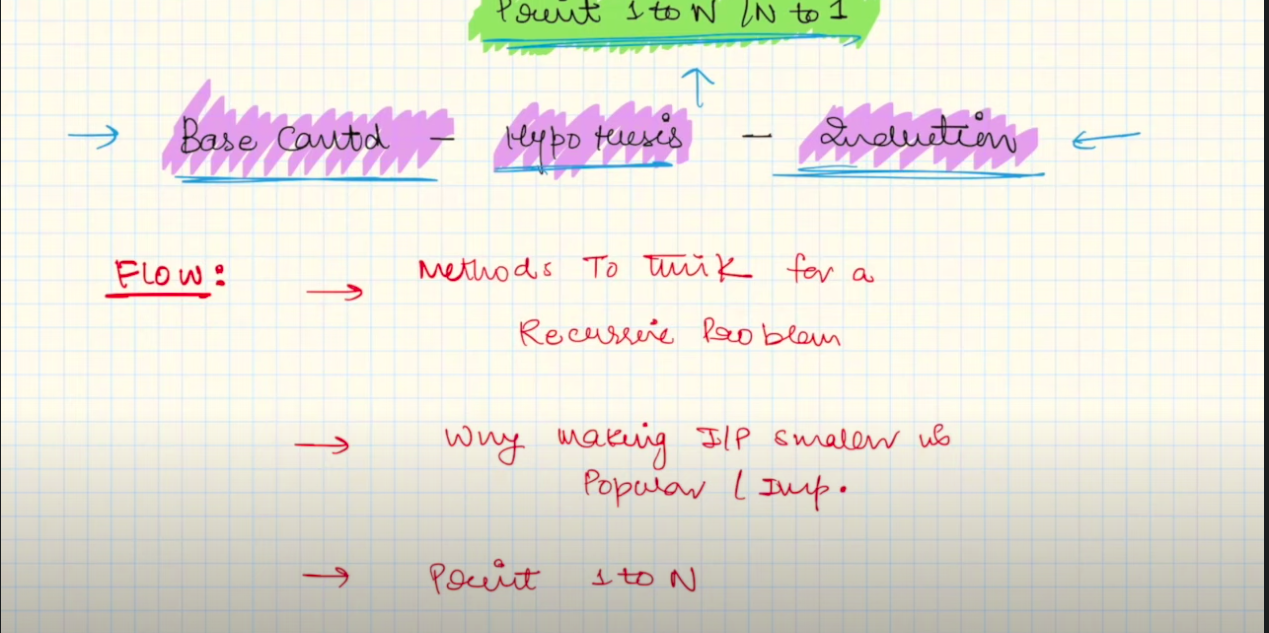 Print 1 to N / N to 1
Base Contd - Hypothesis - Induction
FLOW: → Methods To Think for a
Recursive Problem
→ Why making I/P smaller is
Popular / Imp.
→ Print 1 to N